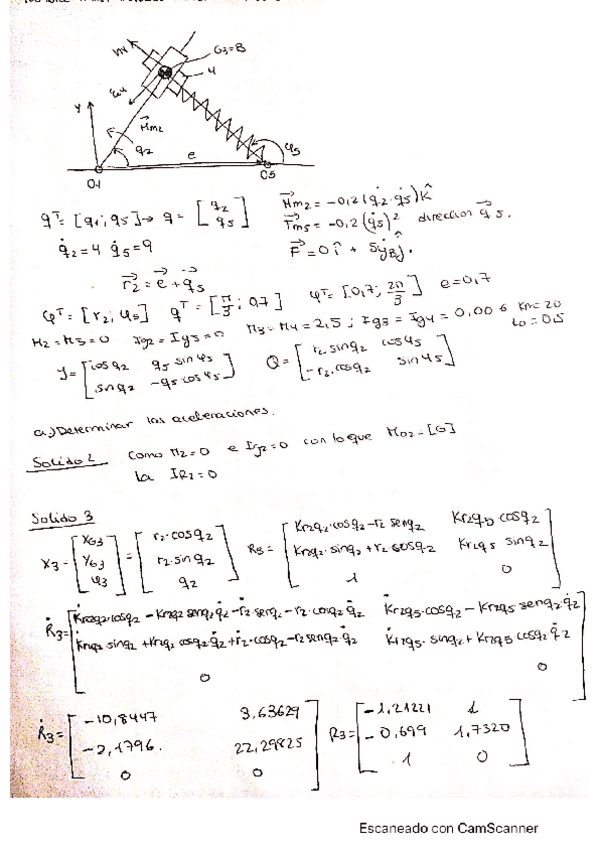 G3=B
4
Y
q2
e
O1
O5
φ5
q^T = [q2, q5] → q = [q2
q5]
Hm2 = -0,2 (q̇2·q̇5) k̂
Fm5 = -0,2 (q̇5)² direccion q5.
q̇2=4 q̇5=9
F = 0 î + 5ẏB ĵ.
r2 = e + q5
φ^T = [r2, φ5] q^T = [π/3 ; 0,7] φ^T = [0,7; 2π/3] e=0,7
M2=M5=0 Ig2=Ig5=0 M3=M4=2,5 ; Ig3=Ig4=0,006 Km=20
lo=0,5
J = [cosq2 q5 sinφ5
sinq2 -q5 cosφ5]
Q = [r2 sinq2 cosφ5
-r2.cosq2 sinφ5]
a) Determinar las aceleraciones.
Solido 2 Como M2=0 e Ig2=0 con lo que MO2=[0]
la IR2=0
Solido 3
X3 = [XG3
YG3
φ3] = [r2·cosq2
r2·sinq2
q2]
R3 = [Kr2q2·cosq2-r2 senq2 Kr2q5 cosq2
Kr2q2·sinq2+r2 cosq2 Kr2q5 sinq2
1 0]
Ṙ3 = [K̇r2q2·cosq2 - Kr2q2 senq2 q̇2 - ṙ2·senq2 - r2·cosq2 q̇2 K̇r2q5·cosq2 - Kr2q5 senq2·q̇2
K̇r2q2 sinq2 + Kr2q2 cosq2 q̇2 + ṙ2·cosq2 - r2 senq2·q̇2 K̇r2q5·sinq2 + Kr2q5 cosq2 q̇2
0 0]
Ṙ3 = [-10,8447 3,63629
-2,1796. 22,29825
0 0]
R3 = [-1,21221 1
-0,699 1,7320
1 0]
Escaneado con CamScanner